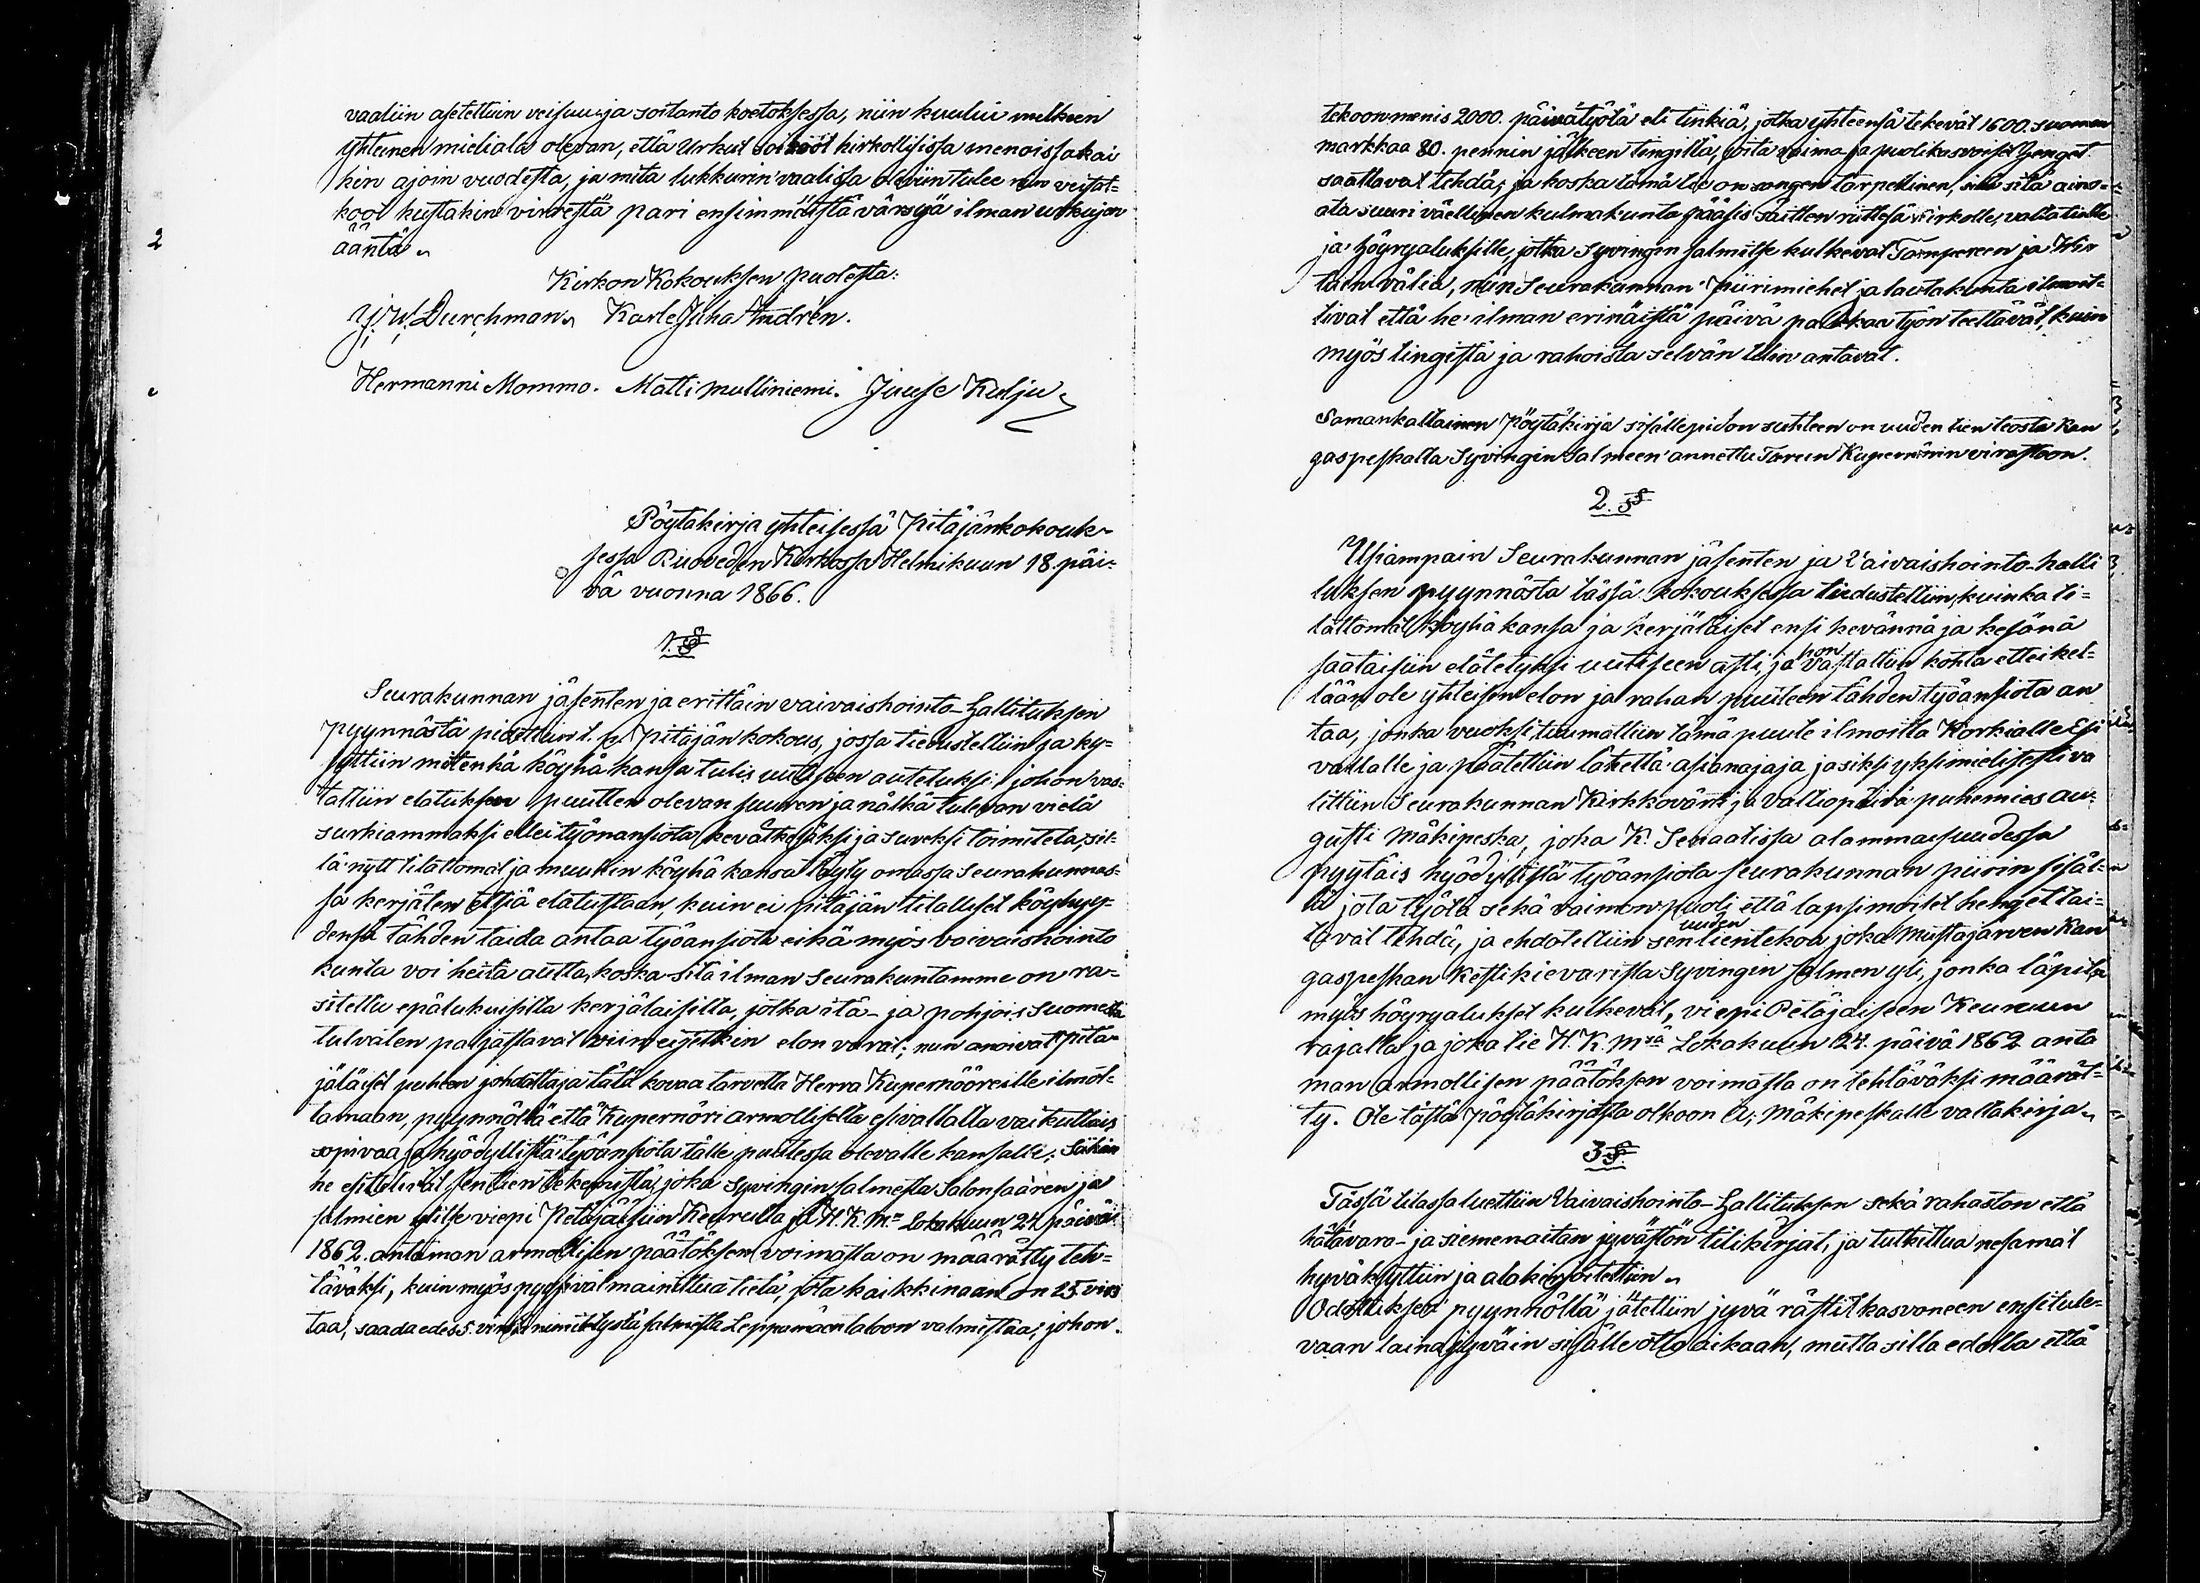 vaaliin asetettuin veisuu- ja soitanto koetoksessa, niin kuului melkeen
yhteinen mieliala olevan, että Urkut soikoot kirkollisissa menoissa kai
kin ajoin vuodesta, ja mitä lukkarin vaalissa oleviin tulee niin veisat-
koot kustakin virrestä pari ensimmäistä värsyä ilman urkujen
ääntä.
Kirkon Kokouksen puolesta:
Y. W. Durchman. Karle Juha Andrén.
Hermanni Mommo. Matti Mulliniemi. Juuse Kulju
Pöytäkirja yhteisessä Pitäjänkokouk-
sessa Ruoveden Kirkossa Helmikuun 18 päi-
vä vuonna 1866.
1. §
Seurakunnan jäsenten ja erittäin vaivaishointo-hallituksen
pyynnöstä pidettiin t. p. Pitäjän kokous, jossa tiedusteltiin ja ky-
syttiin mitenkä köyhä kansa tulis uutiseen autetuksi; johon vas-
tattiin elatuksen puutten olevan suuren ja nälkä tulevan vielä
surkiammaksi ellei työnansiota kevätkesäksi ja suveksi toimiteta, sil-
lä nytt tilattomat ja muukin köyhä kansa täyty omassa Seurakunnas-
sa kerjäten etsiä elatustaan, kuin ei pitäjän tilalliset köyhyy-
densä tähden taida antaa työansiota eikä myös vaivaishointo
kunta voi heitä autta, koska sitä ilman Seurakuntamme on ra-
sitettu epälukuisilla kerjäläisillä, jotka itä- ja pohjois Suomesta
tulvaten paljastavat viimeisetkin elon varat; niin anoivat pitä-
jäläiset puheen johdattaja tätä kovaa tarvetta Herra Kupernööreille ilmot-
tamaan, pyynnöllä että Kupernöri armolliselta esivallalta vaikuttais
sopivaa ja hyödyllistä työansiota tälle puutessa olevalle kansalle; Siihen
he esittelivät sen tien tekemistä, joka Syvingin salmesta Salonsaaren ja
salmien ylitse viepi Petäjäisiin Keurulla ja H. K. M:n Lokakuun 27 päivä
1862 antaman armollisen päätöksen voimasta on määrätty teh-
täväksi, kuin myös pyysivät mainittua tietä, jota kaikkinaan on 25 virs
taa, saada edes 5. virstaa nimitetystä salmesta Leppämäen taloon valmistaa; johon
tekoon menis 2000. päivätyötä eli tinkiä, jotka yhteensä tekevät 1600. suomen
markkaa 80. pennin jälkeen tingiltä, joita vaimo ja puolikasvoiset henget
saattavat tehdä; ja koska tämä tie on sangen tarpeellinen, sillä sitä aino-
ata suuri väellinen kulmakunta pääsis säitten riittessä kirkolle, valtatielle
ja höyryaluksille, jotka Syvingin salmitse kulkevat Tampereen ja Wir
tain väliä, niin Seurakunnan piirimiehet ja lautakunta ilmoit-
tivat että he ilman erinäistä päivä palkkaa työn teettävät, kuin
myös tingistä ja rahoista selvän tilin antavat.
Samankaltainen Pöytäkirja sisällepidon suhteen on uuden tien teosta Kan
gaspeskalta Syvingin Salmeen annettu Turun Kupernörin virastoon.
2. §
Usiampain Seurakunnan jäsenten ja Vaivaishointo-halli
tuksen pyynnöstä tässä kokouksessa tiedusteltiin, kuinka ti-
lattomat köyhä kansa ja kerjäläiset ensi kevännä ja kesänä
saataisiin elätetyksi uutiseen asti, ja hon vastattiin kohta ettei kel-
lään ole yhteisen elon ja rahan puuteen tähden työansiota an
taa, jonka vuoksi tuumattiin tämä puute ilmoitta Korkialle Esi
vallalle ja päätettiin lähettä asianajaja ja siksi yksimielisesti va
littiin Seurakunnan Kirkkovärti ja valtiopäivä puhemies Au-
gusti Mäkipeska, joka K. Senaatissa alammaisuudessa
pyytäis hyödyllistä työansiota Seurakunnan piirin sisäl-
lä jota työtä sekä vaimon puoli että lapsimoiset henget tai-
tavat tehdä, ja ehdotettiin sen uuden tientekoa joka Mustajärven Kan
gaspeskan Kestikievarista Syvingin salmen yli, jonka läpitse
myös höyryalukset kulkevat, viepi Petäjäiseen Keuruun
rajalla ja joka tie H. K. M:n Lokakuun 27. päivä 1862 anta
man armollisen päätöksen voimasta on tehtäväksi määrät-
ty. Ote tästä pöytäkirjasta olkoon A. Mäkipeskalle valtakirja.
3 §.
Tässä tilassa luettiin Vaivaishointo-Hallituksen sekä rahaston että
hätävara- ja siemenaitan jyvästön tilikirjat, ja tutkittua ne samat
hyväksyttiin ja alakirjoitettiin.
Odotuksen pyynnöllä jätettiin jyvä rästit kasvoneen ensitule-
vaan laina jyväin sisälle otto aikaan, mutta sillä edolla että